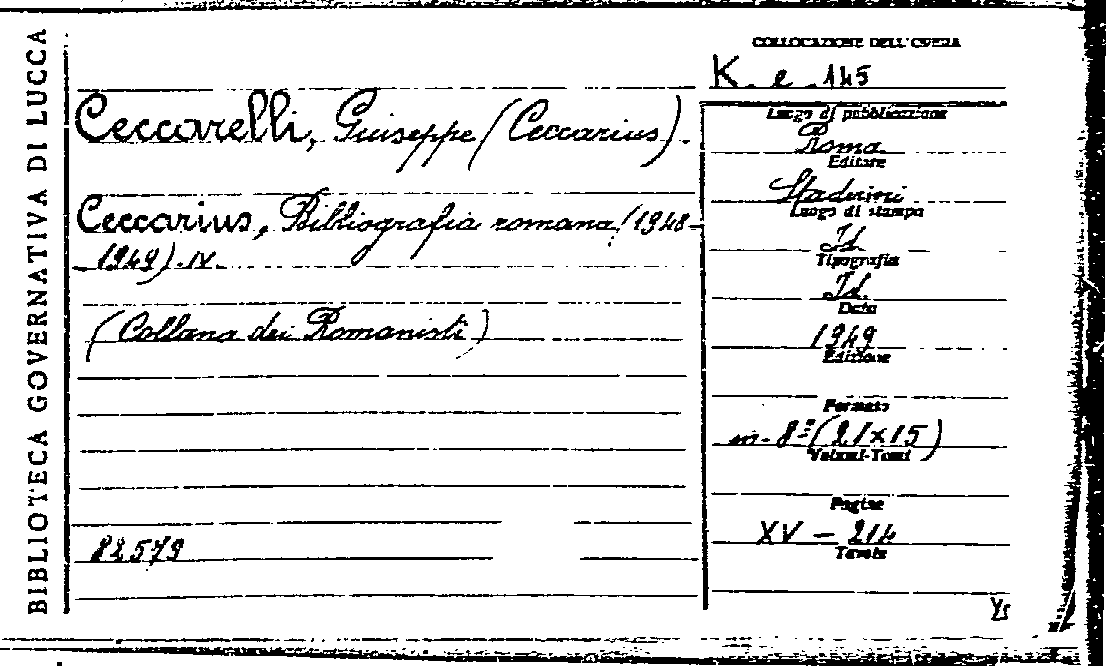 BIBLIOTECA GOVERNATIVA DI LUCCA
COLLOCAZIONE DELL'OPERA
K. e. 145
Ceccarelli, Giuseppe (Ceccarius).
Ceccarius, Bibliografia romana (1948-
1949). IV.
(Collana dei Romanisti)
82579
Luogo di pubblicazione
Roma
Editore
Staderini
Luogo di stampa
Id.
Tipografia
Id.
Data
1949
Edizione
Formato
in-8º (21x15)
Volumi-Tomi
Pagine
XV - 214
Tavole